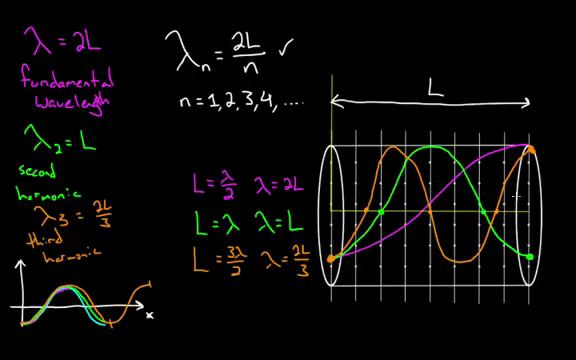 λ = 2L
fundamental
wavelength
λ₂ = L
second
harmonic
λ₃ = 2L/3
third
harmonic
x
λₙ = 2L/n ✓
n = 1, 2, 3, 4, ....
L = λ/2 λ = 2L
L = λ λ = L
L = 3λ/2 λ = 2L/3
L